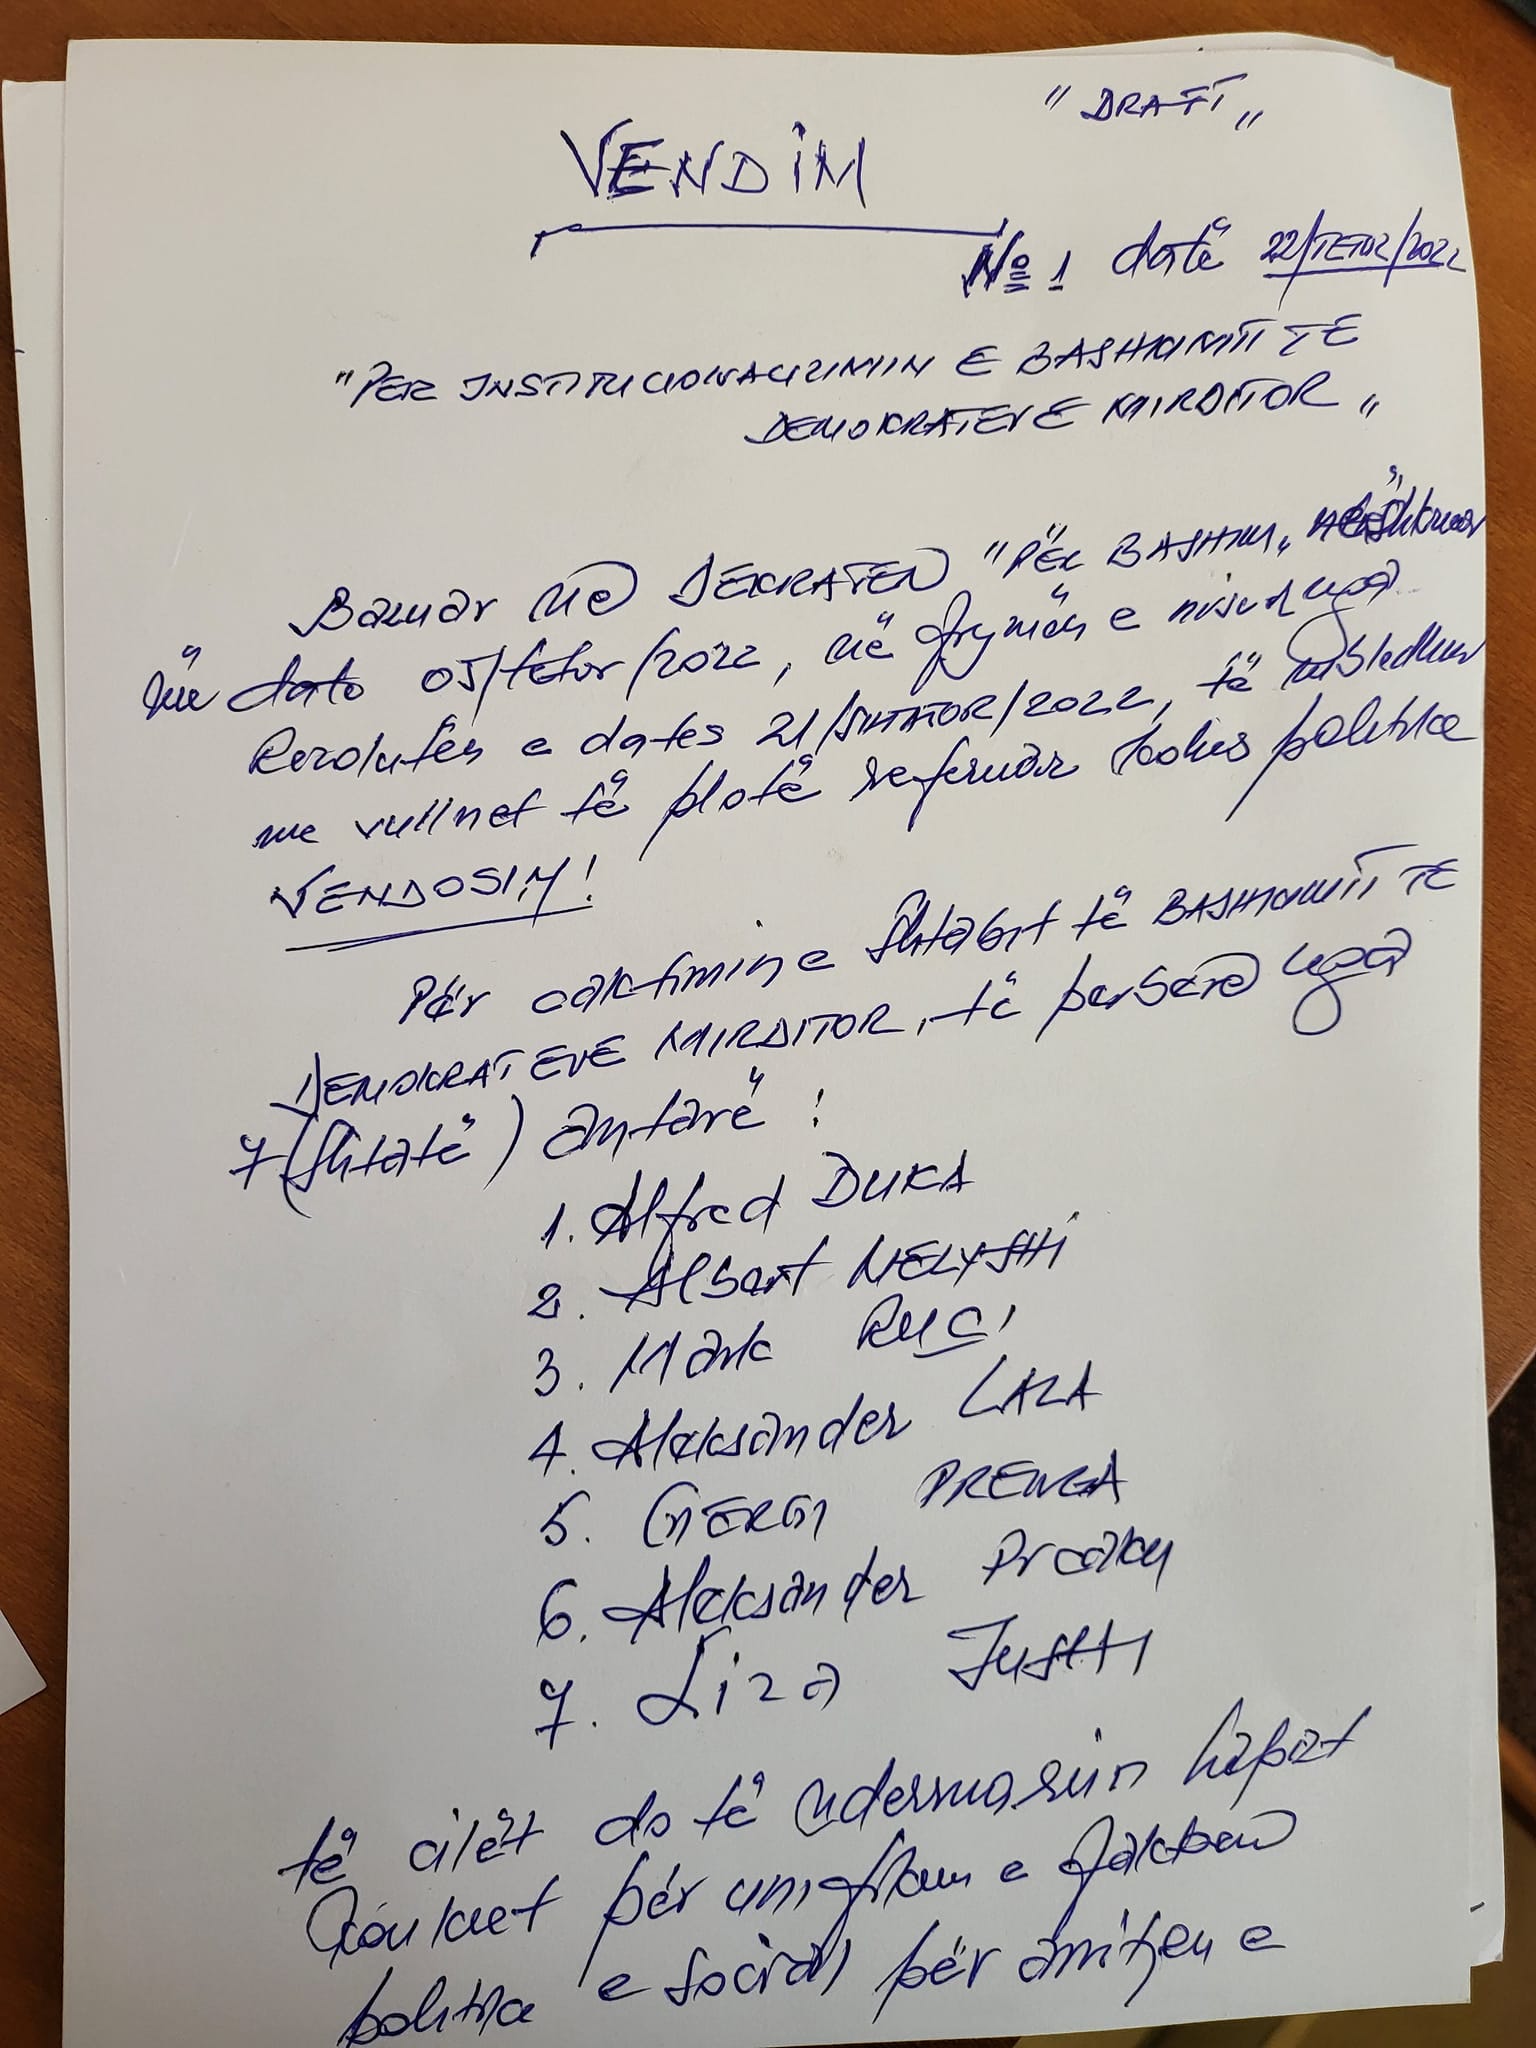 "DRAFT"
VENDIM
Nº 1 datë 22/TETOR/2022
"PER INSTITUCIONALIZIMIN E BASHKIMIT TE
DEMOKRATEVE MIRDITOR"
Bazuar në DEKRATEN "PËR BASHKIM" nënshkruar
në dato 05/tetor/2022, në frymën e nisur nga
Rezolutën e dates 21/SHTATOR/2022, të
me vullnet të plotë referuar kohes politike
VENDOSIM!
Për caktimin e Shtabit të BASHKIMIT TE
DEMOKRATEVE MIRDITOR, të perbërë nga
7 (Shtatë) antarë:
1. Alfred DUKA
2. Albert MELYSHI
3. Mark RUCI
4. Aleksander LAZA
5. GJERGJ PRENGA
6. Aleksander Precaku
7. Liza JUSHI
të cilët do të ndermarrin hapat
konkret për unifikim e faktorëve
politike e social për arritjen e